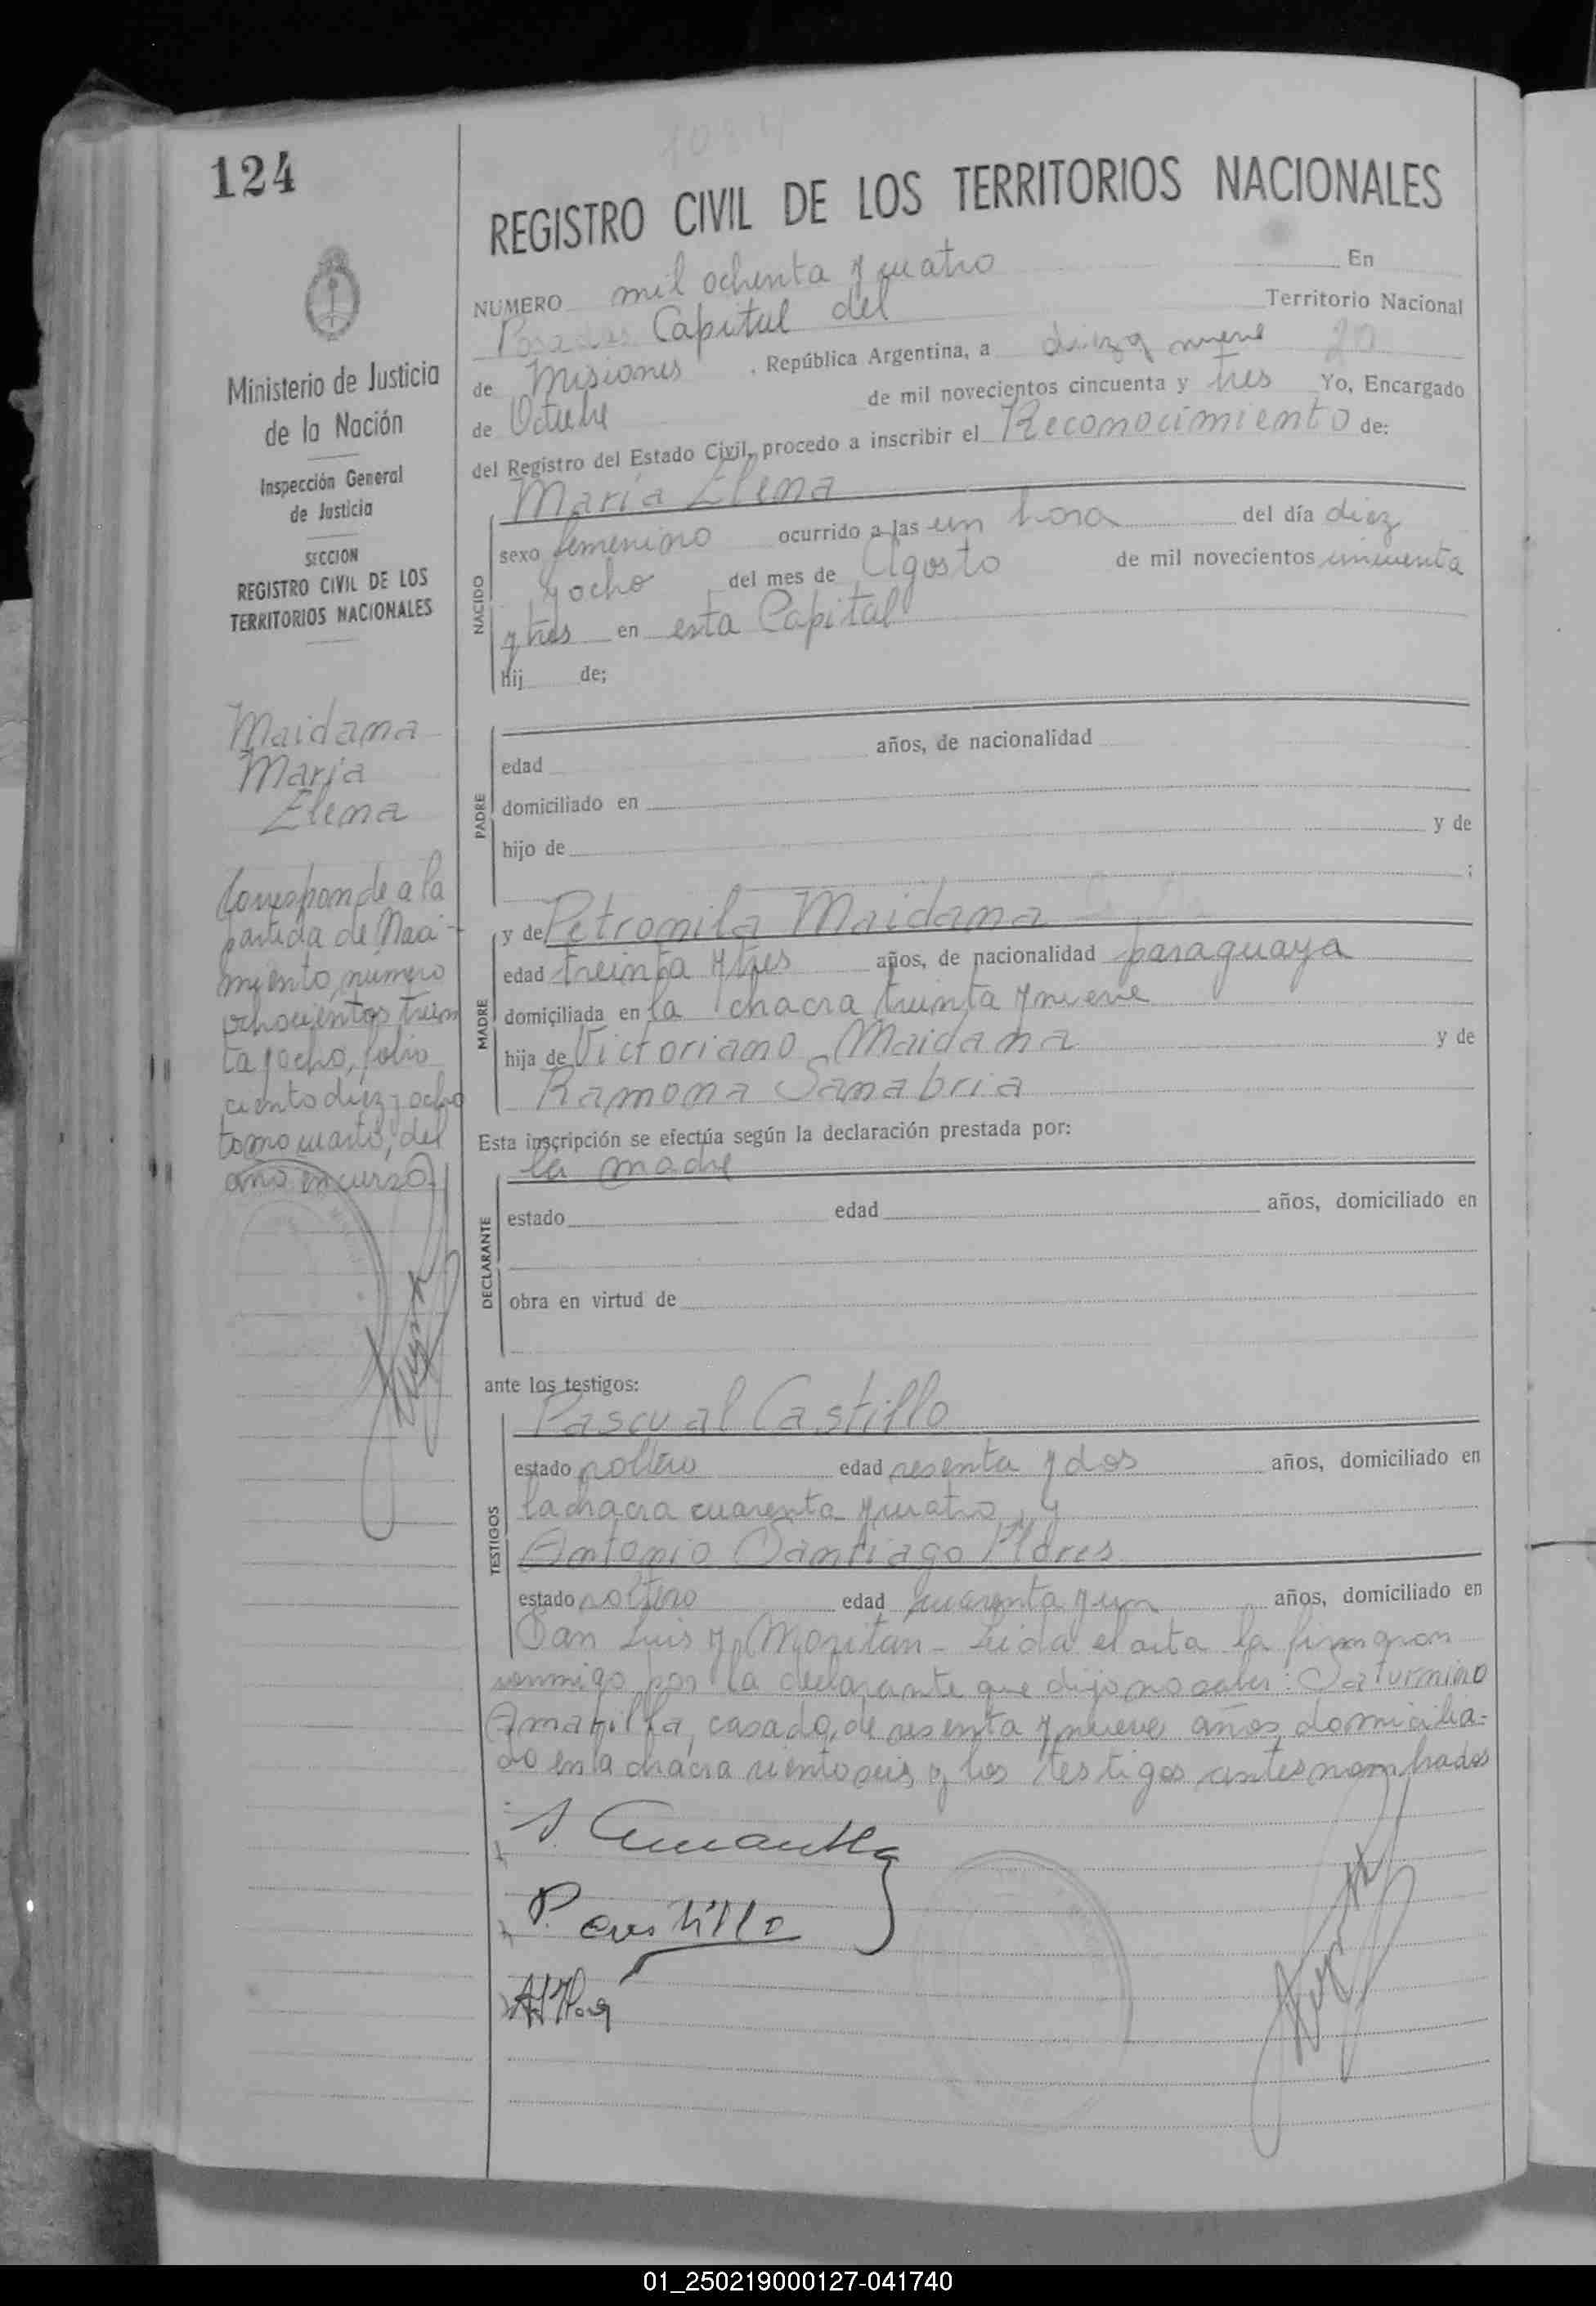 124
1084
REGISTRO CIVIL DE LOS TERRITORIOS NACIONALES
NUMERO mil ochenta y cuatro En
Posadas Capital del Territorio Nacional
de Misiones , República Argentina, a diez y nueve
de Octubre de mil novecientos cincuenta y tres Yo, Encargado
del Registro del Estado Civil, procedo a inscribir el Reconocimiento de:
María Elena
NACIDO
sexo femenino ocurrido a las un hora del día diez
y ocho del mes de Agosto de mil novecientos cincuenta
y tres en esta Capital
hij de;
PADRE
edad años, de nacionalidad
domiciliado en
hijo de y de
;
MADRE
y de Petronila Maidana
edad treinta y tres años, de nacionalidad paraguaya
domiciliada en la chacra treinta y nueve
hija de Victoriano Maidana y de
Ramona Sanabria
Esta inscripción se efectúa según la declaración prestada por:
la madre
DECLARANTE
estado edad años, domiciliado en
obra en virtud de
ante los testigos:
TESTIGOS
Pascual Castillo
estado soltero edad sesenta y dos años, domiciliado en
la chacra cuarenta y cuatro, y
Antonio Santiago Flores
estado soltero edad cuarenta y un años, domiciliado en
San Luis y Moritan - Leida el acta la firmaron
conmigo por la declarante que dijo no saber: Saturnino
Amarilla, casado, de sesenta y nueve años, domicilia-
do en la chacra ciento seis y los testigos antes nombrados
S. Amarilla
P. Castillo
Ministerio de Justicia
de la Nación
Inspección General
de Justicia
SECCION
REGISTRO CIVIL DE LOS
TERRITORIOS NACIONALES
Maidana
María
Elena
Corresponde a la
partida de Naci-
miento, número
ochocientos trein
ta y ocho, folio
ciento diez y ocho
tomo cuarto, del
año en curso
01_250219000127-041740